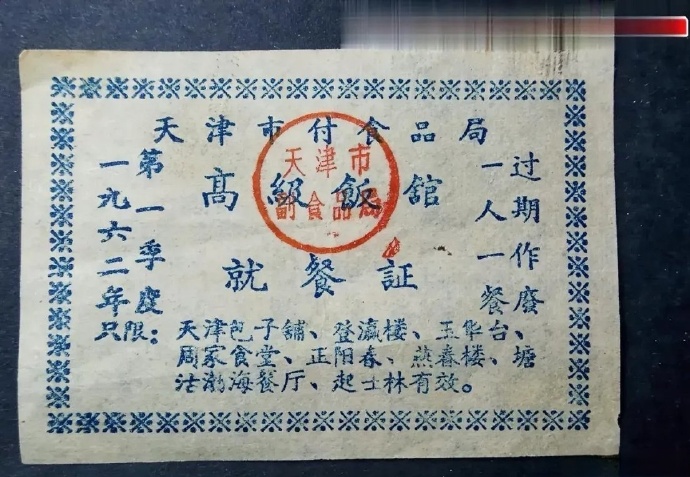 天津市付食品局
天津市
副食品局
高級飯舘
就餐証
一九六二年
第一季度
过期作廢
一人一餐
只限：天津包子舖、登瀛楼、玉华台、
周家食堂、正阳春、燕春楼、塘
沽渤海餐厅、起士林有效。